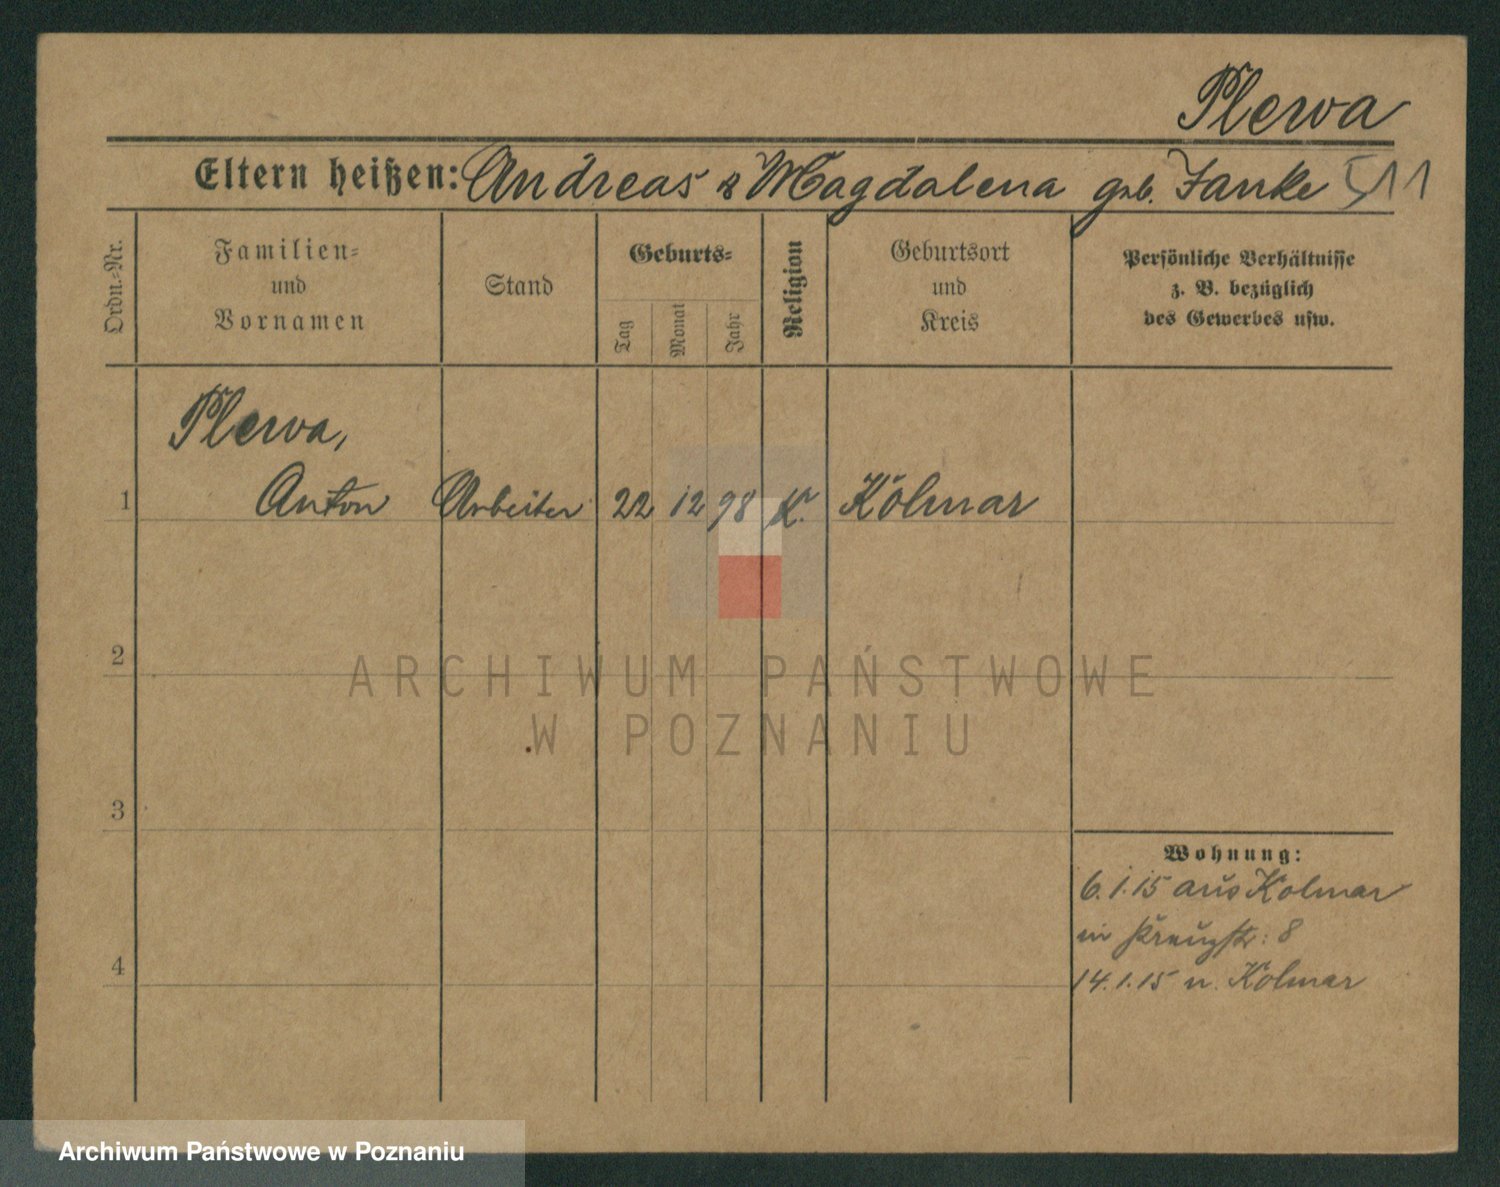 Plewa
Eltern heißen: Andreas & Magdalena geb. Janke 511
Ordn.-Nr.
Familien-
und
Vornamen
Stand
Geburts-
Tag
Monat
Jahr
Religion
Geburtsort
und
Kreis
Persönliche Verhältnisse
z. B. bezüglich
des Gewerbes usw.
Plewa,
1 Anton Arbeiter 22 12 98 K. Kolmar
2
3
4
Wohnung:
6.1.15 aus Kolmar
in Kreuzstr: 8
14.1.15 n. Kolmar
ARCHIWUM PAŃSTWOWE
W POZNANIU
Archiwum Państwowe w Poznaniu